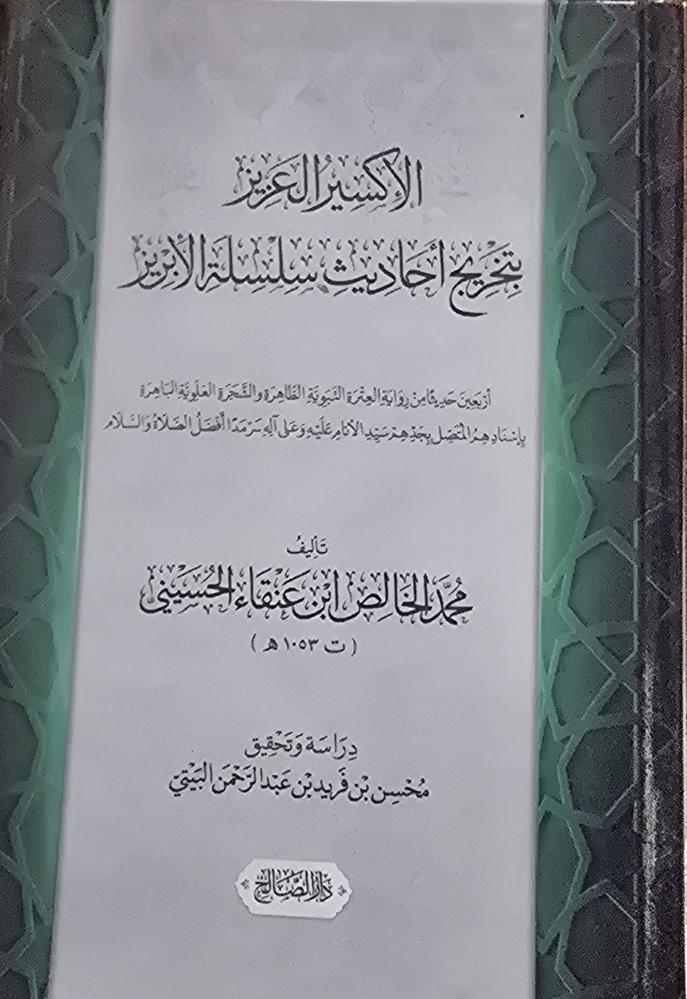 الإكسير العزيز
بتخريج أحاديث سلسلة الأبريز
أربعين حديثا من رواية العترة النبوية الطاهرة والشجرة العلوية الباهرة
بإسنادهم المتصل بجدهم سيد الأنام عليه وعلى آله سرمدا أفضل الصلاة والسلام
تأليف
محمد الخالص ابن عنقاء الحسيني
(ت ١٠٥٣ هـ)
دراسة وتحقيق
محسن بن فريد بن عبد الرحمن البيتي
دار الصالح